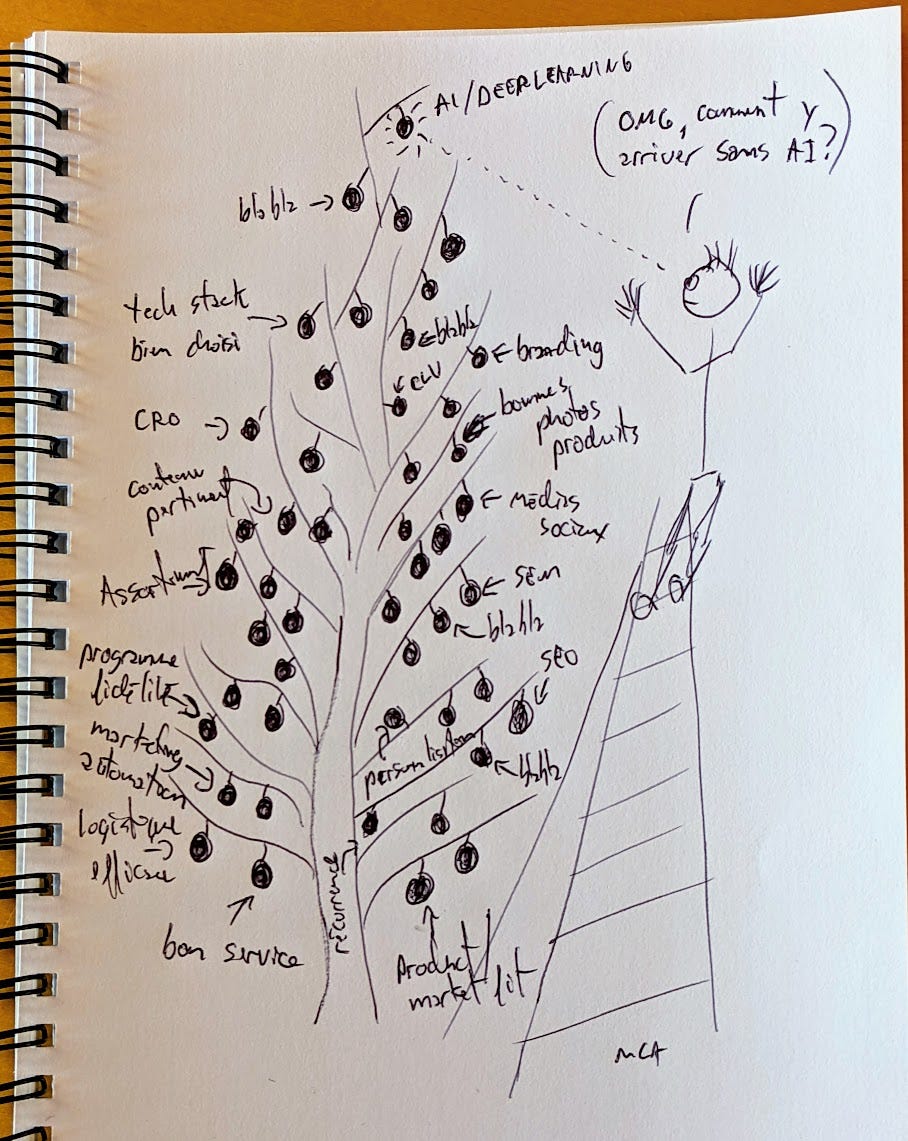 AI/DEEPLEARNING
(OMG, comment y
arriver sans AI?)
blabla →
tech stack
bien choisi
← blabla
← branding
← CLV
CRO →
← bonnes
photos
produits
contenu
pertinent
← médias
sociaux
Assortiment
← SEM
← blabla
programme
fidélité
SEO
personalisation
marketing
automation
← blabla
logistique
efficace
récurrence
bon service
Product
market fit
MCA